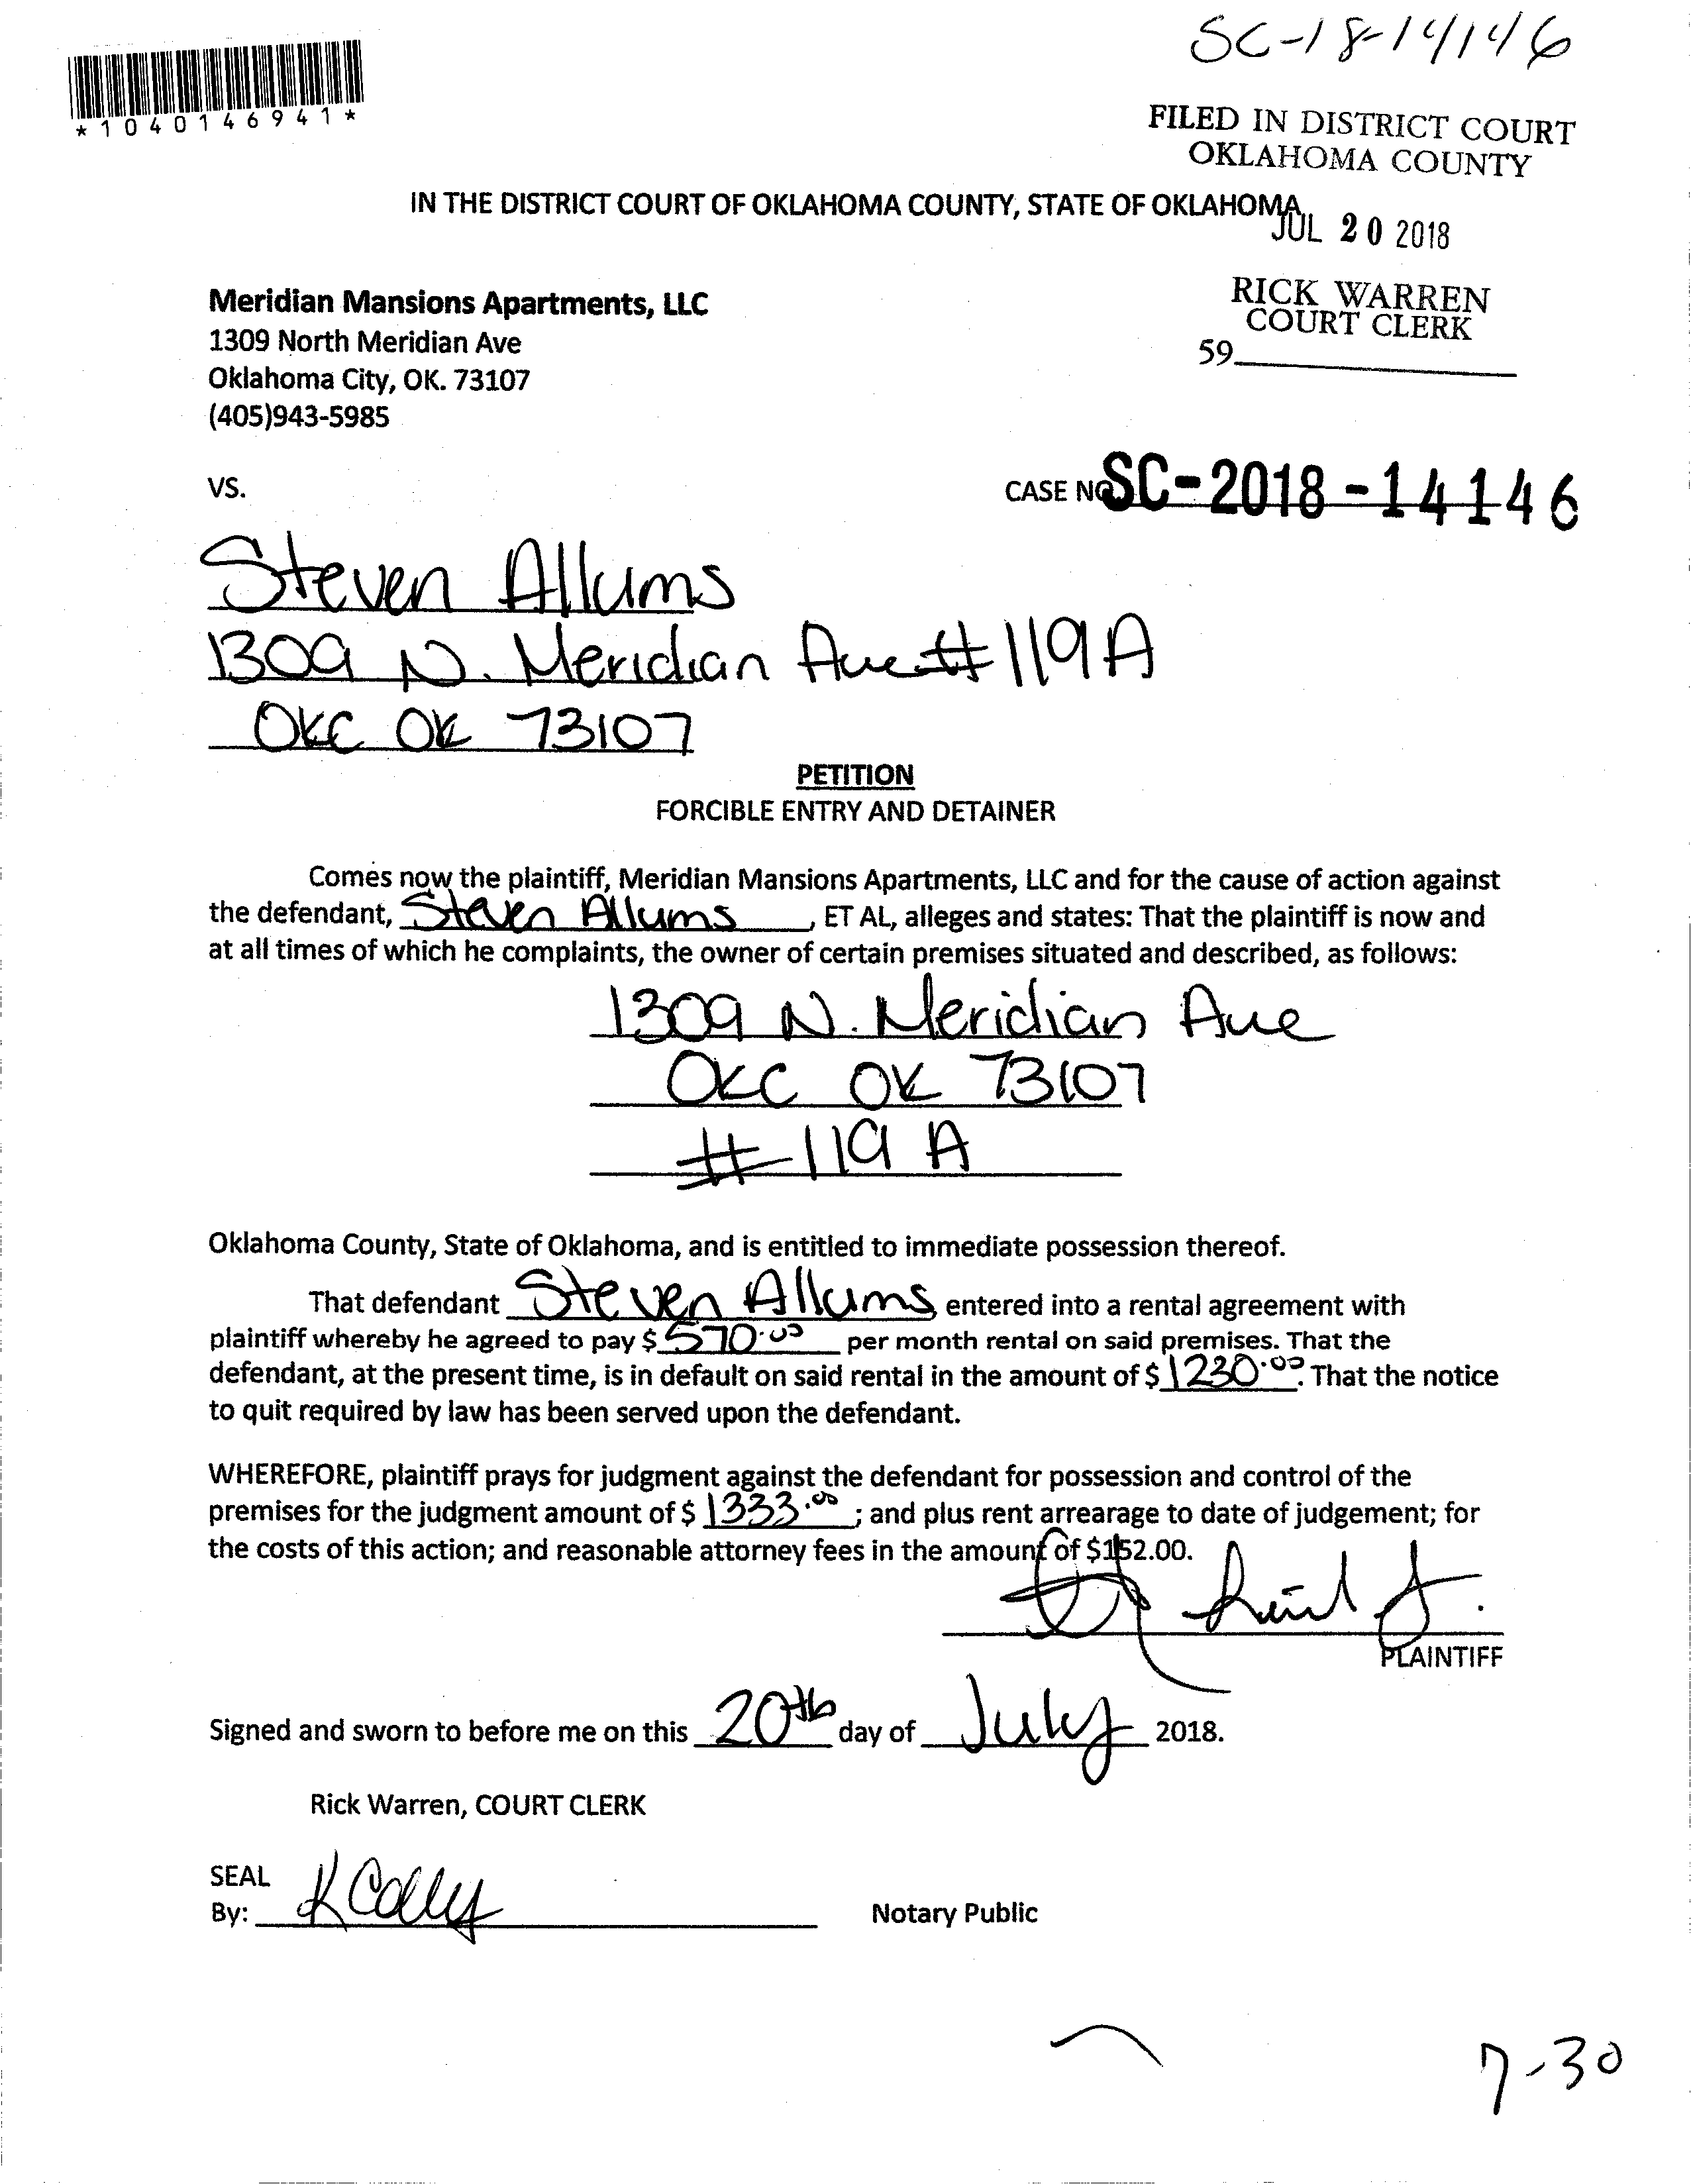 SC-18-14146
*1040146941*
FILED IN DISTRICT COURT
OKLAHOMA COUNTY
IN THE DISTRICT COURT OF OKLAHOMA COUNTY, STATE OF OKLAHOMA
JUL 20 2018
Meridian Mansions Apartments, LLC
1309 North Meridian Ave
Oklahoma City, OK. 73107
(405)943-5985
RICK WARREN
COURT CLERK
59
VS.
CASE NO SC-2018-14146
Steven Allums
1309 N. Meridian Ave #119A
OKC OK 73107
PETITION
FORCIBLE ENTRY AND DETAINER
Comes now the plaintiff, Meridian Mansions Apartments, LLC and for the cause of action against
the defendant, Steven Allums, ET AL, alleges and states: That the plaintiff is now and
at all times of which he complaints, the owner of certain premises situated and described, as follows:
1309 N. Meridian Ave
OKC OK 73107
#119 A
Oklahoma County, State of Oklahoma, and is entitled to immediate possession thereof.
That defendant Steven Allums, entered into a rental agreement with
plaintiff whereby he agreed to pay $ 570.00 per month rental on said premises. That the
defendant, at the present time, is in default on said rental in the amount of $ 1230.00. That the notice
to quit required by law has been served upon the defendant.
WHEREFORE, plaintiff prays for judgment against the defendant for possession and control of the
premises for the judgment amount of $ 1333.00; and plus rent arrearage to date of judgement; for
the costs of this action; and reasonable attorney fees in the amount of $152.00.
PLAINTIFF
Signed and sworn to before me on this 20th day of July 2018.
Rick Warren, COURT CLERK
SEAL
By:
Notary Public
7-30